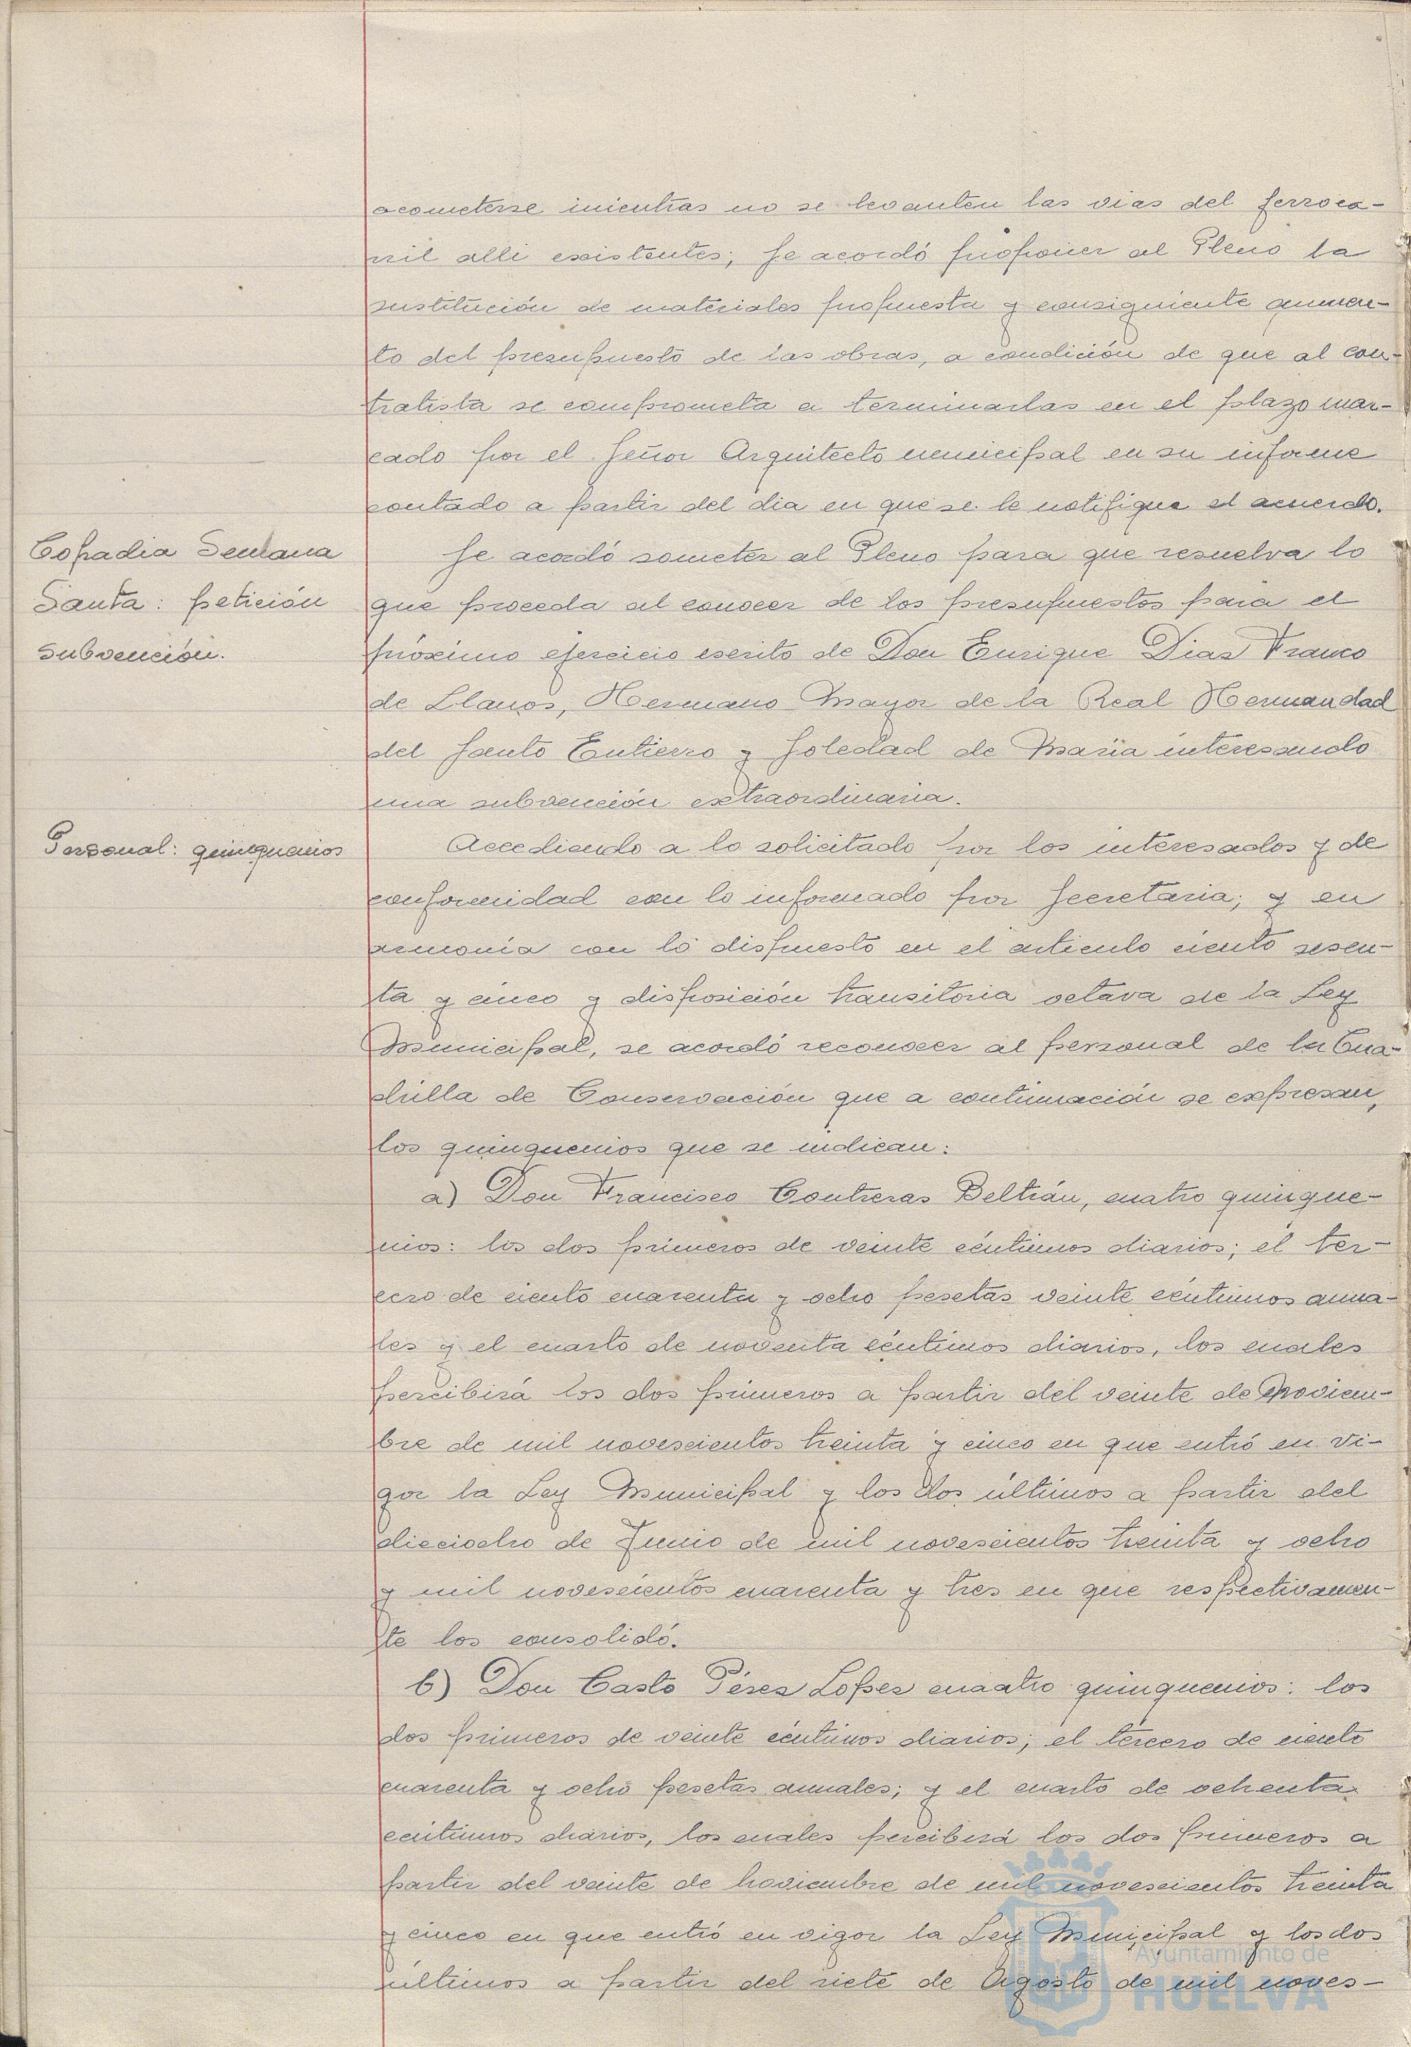 acometerse mientras no se levanten las vias del ferroca-
rril alli existentes; Se acordó proponer al Pleno la
sustitución de materiales propuesta y consiguiente aumen-
to del presupuesto de las obras, a condición de que al con-
tratista se comprometa a terminarlas en el plazo mar-
cado por el Señor Arquitecto municipal en su informe
contado a partir del dia en que se le notifique el acuerdo.
Cofradia Semana
Santa: petición
subvención.
Se acordó someter al Pleno para que resuelva lo
que proceda al conocer de los presupuestos para el
próximo ejercicio escrito de Don Enrique Diaz Franco
de Llanos, Hermano Mayor de la Real Hermandad
del Santo Entierro y Soledad de Maria interesando
una subvención extraordinaria.
Personal: quinquenios
Accediendo a lo solicitado por los interesados y de
conformidad con lo informado por Secretaria; y en
armonía con lo dispuesto en el articulo ciento sesen-
ta y cinco y disposición transitoria octava de la Ley
Municipal, se acordó reconocer al personal de la Cua-
drilla de Conservación que a continuación se expresan,
los quinquenios que se indican:
a) Don Francisco Contreras Beltrán, cuatro quinque-
nios: los dos primeros de veinte céntimos diarios; el ter-
cero de ciento cuarenta y ocho pesetas veinte céntimos anua-
les y el cuarto de noventa céntimos diarios, los cuales
percibirá los dos primeros a partir del veinte de Noviem-
bre de mil novescientos treinta y cinco en que entró en vi-
gor la Ley Municipal y los dos últimos a partir del
dieciocho de Junio de mil novescientos treinta y ocho
y mil novescientos cuarenta y tres en que respectivamen-
te los consolidó.
b) Don Casto Pérez Lopez cuaatro quinquenios: los
dos primeros de veinte céntimos diarios; el tercero de ciento
cuarenta y ocho pesetas anuales; y el cuarto de ochenta
céntimos diarios, los cuales percibirá los dos primeros a
partir del veinte de noviembre de mil novescientos treinta
y cinco en que entró en vigor la Ley Municipal y los dos
últimos a partir del siete de Agosto de mil noves-
Ayuntamiento de
HUELVA